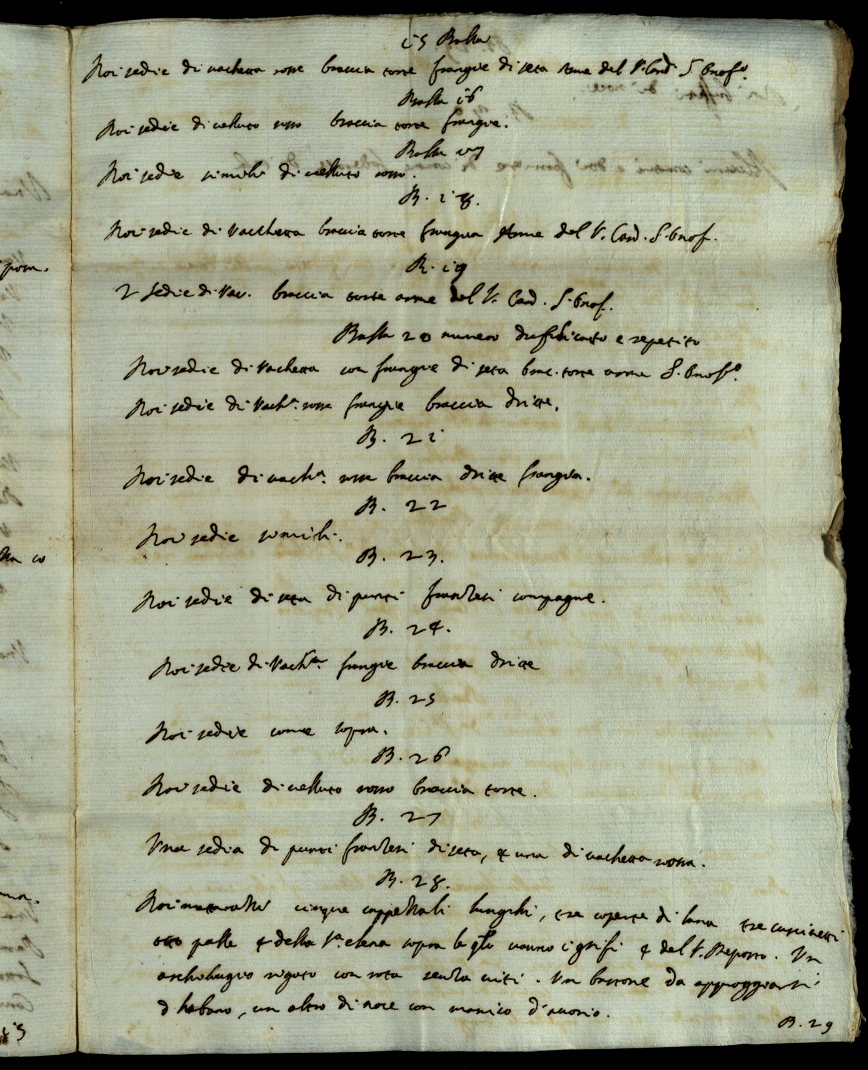 i5 Balla
Doi sedie di vachetta rosse braccia torte frangie di seta arme del S. Card. S. Onof.o
Balla i6
Doi sedie di velluto rosso braccia torte frangie.
Balla i7
Doi sedie simili di velluto rosso.
B. i8.
Doi sedie di Vacchetta braccia torte frangia Arme del S. Card. S. Onof.
B. i9
2 sedie di Vac. braccia torte arme del S. Card. S. Onof.
Balla 20 numero duplicato e repetito
Doi sedie di Vachetta con frangie di seta brac. torte arme S. Onof.o
Doi sedie di Vach.a rosse frangie braccia dritte.
B. 2i
Doi sedie di vach.a rosse braccia dritte frangia.
B. 22
Doi sedie simili.
B. 23.
Doi sedie di seta di punti franzesi compagne.
B. 24.
Doi sedie di Vach.a frangie braccia dritte
B. 25
Doi sedie come sopra.
B. 26
Doi sedie di velluto rosso braccia torte.
B. 27
Una sedia di punti franzesi di seta, et una di vachetta rossa.
B. 28.
Doi matarazzi cinque cappezzali lunghi, tre coperte di lana tre cuscinetti
palle et della elena sopra le vanno i grifi et del S. Un
archibugio rigato con rota senza viti. Un bastone da appoggiarsi
d'hebano, un altro di noce con manico d'avorio.
B. 29